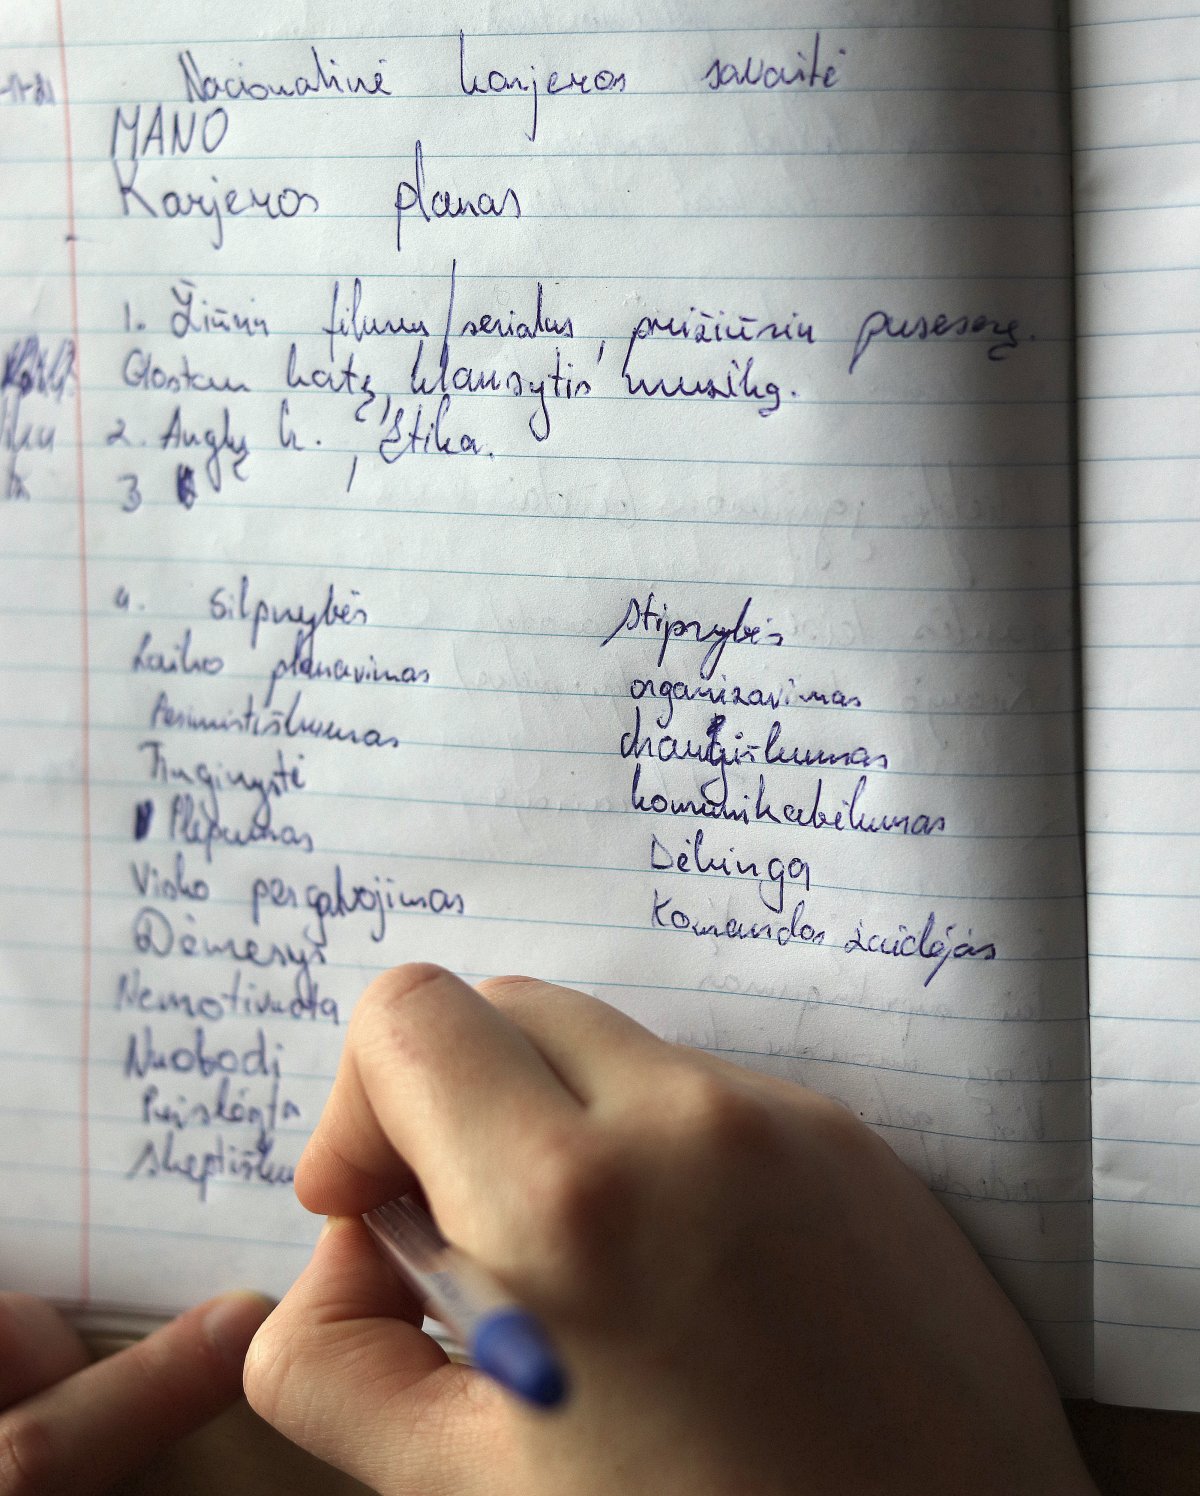 Nacionalinė karjeros savaitė
MANO
Karjeros planas
1. Žiūriu filmus/serialus, prižiūriu pusseserę.
Glostau katę, klausytis muziką.
2. Anglų k. , Etika.
3
4. Silpnybės
Laiko planavimas
Pesimistiškumas
Tinginystė
Plepumas
Visko pergalvojimas
Dėmesys
Nemotivuota
Nuobodi
Prislėgta
skeptišku
stiprybės
organizavimas
draugiškumas
komunikabėlumas
Dėkinga
Komandos žaidėjas